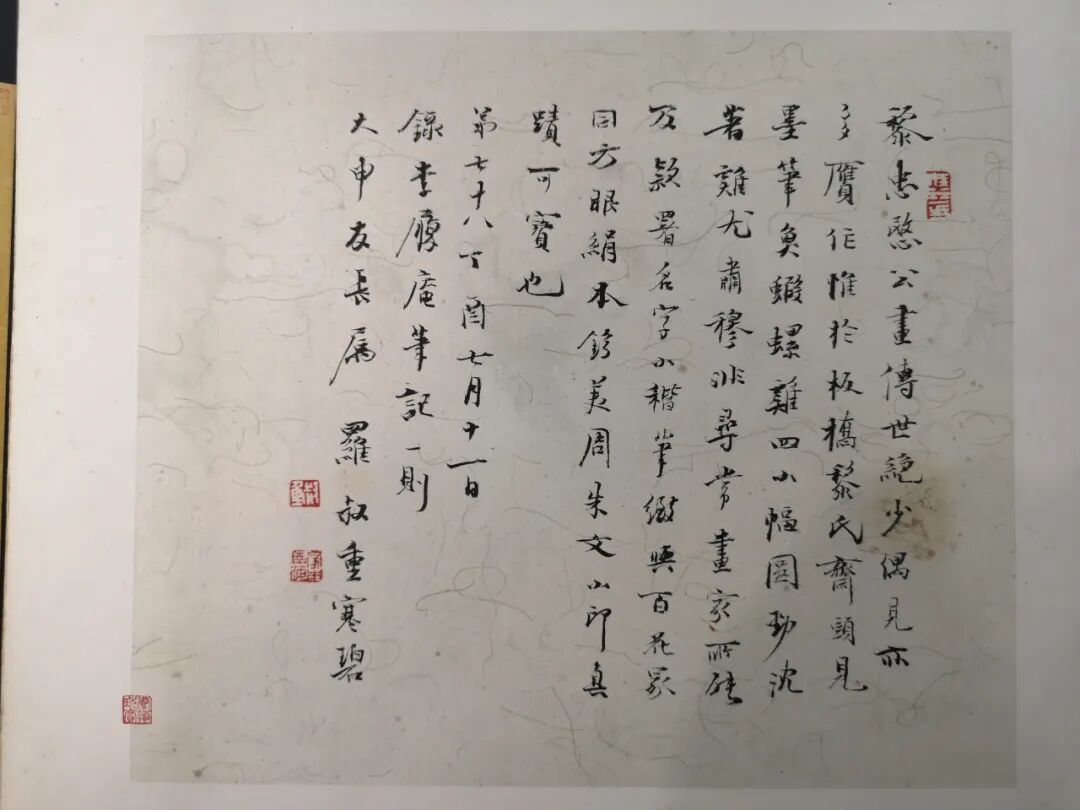 黎忠愍公畫傳世絕少偶見亦
多贋作惟於板橋黎氏齋頭見
墨筆魚蝦螺雞四小幅圓勁沈
著雞尤肅穆非尋常畫家所能
及款署名字小楷筆緻與百花冢
同方眼絹本鈐美周朱文小印真
蹟可寶也
弟七十八丁酉七月十一日
錄李鳳庵筆記一則
大申友長屬 羅叔重寒碧